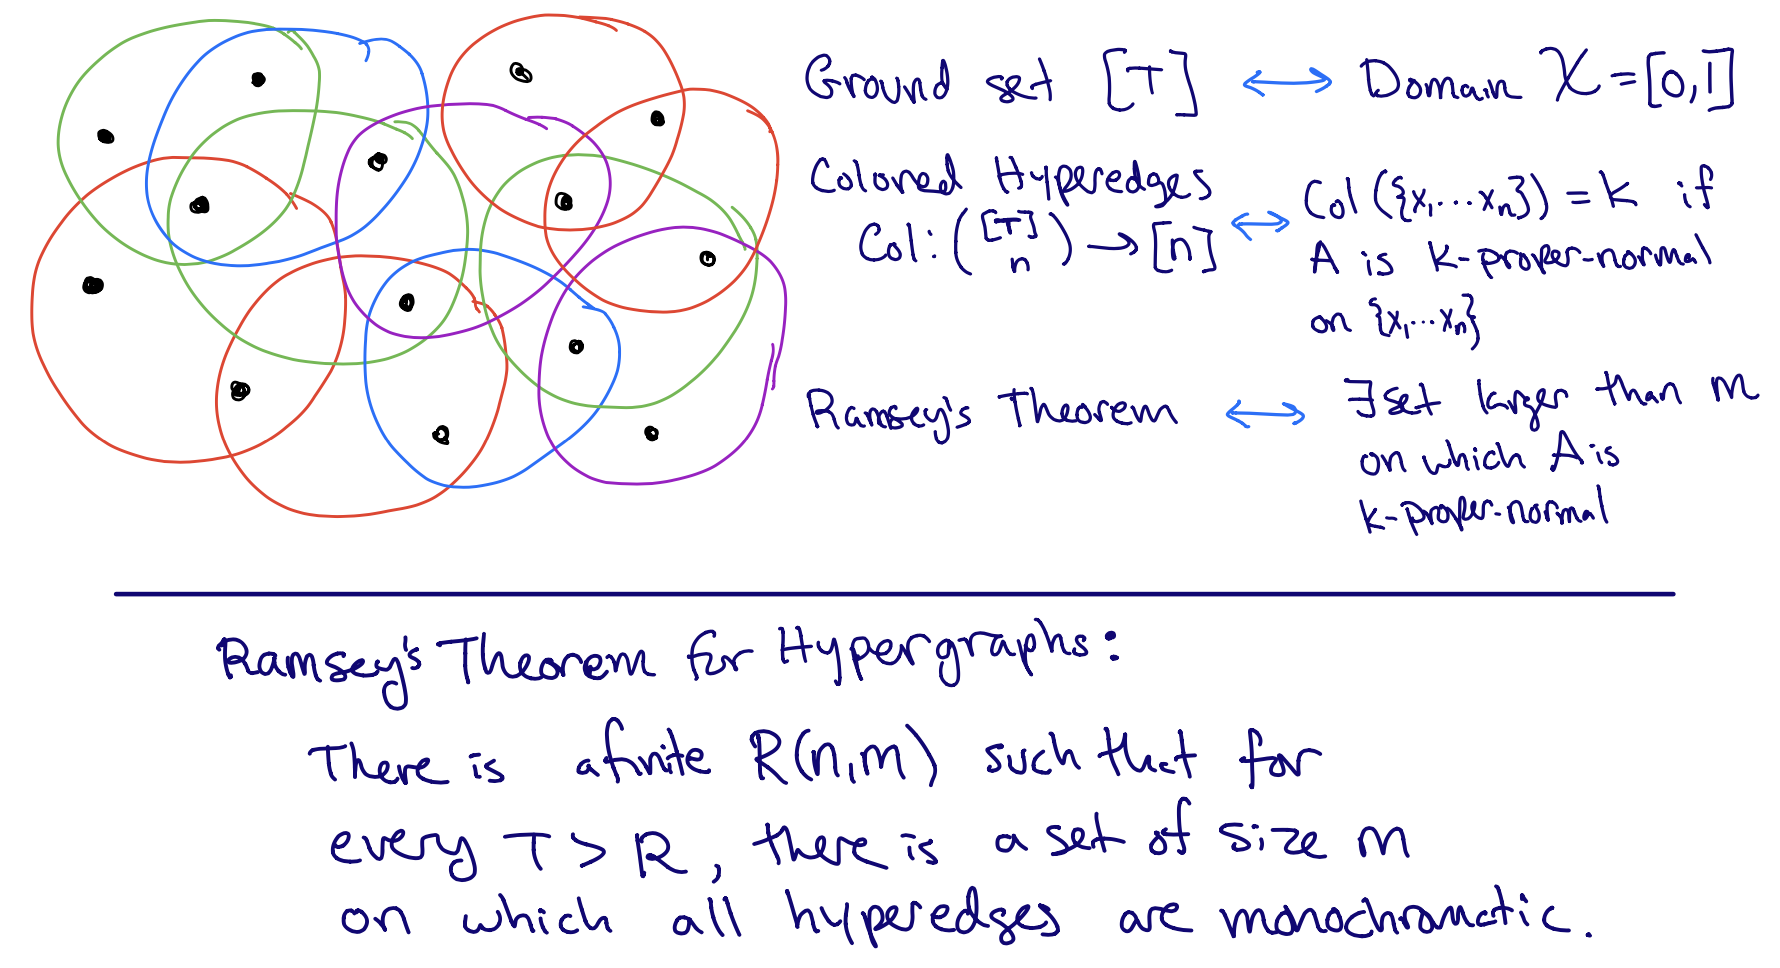 Ground set [T] ⟷ Domain 𝒳 = [0,1]
Colored Hyperedges
Col: ([T] n) → [n] ⟷ Col({x₁...xₙ}) = k if
A is k-proper-normal
on {x₁...xₙ}
Ramsey's Theorem ⟷ ∃ set larger than m
on which A is
k-proper-normal
Ramsey's Theorem for Hypergraphs:
There is a finite R(n,m) such that for
every T > R, there is a set of size m
on which all hyperedges are monochromatic.